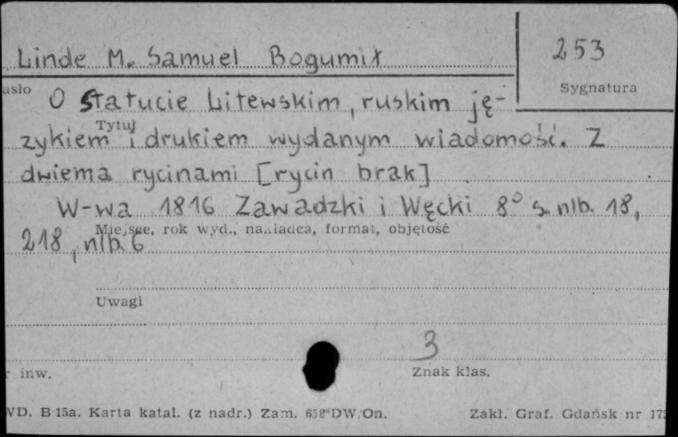 Linde M. Samuel Bogumił
253
asło
Sygnatura
O Statucie Litewskim, ruskim ję-
Tytuł
zykiem i drukiem wydanym wiadomość. Z
dwiema rycinami [rycin brak]
W-wa 1816 Zawadzki i Węcki 8° s. nlb. 18,
Miejsce, rok wyd., nakładca, format, objętość
218, nlb. 6
Uwagi
3
r inw.
Znak klas.
WD. B 15a. Karta katal. (z nadr.) Zam. DW/On.
Zakł. Graf. Gdańsk nr 17